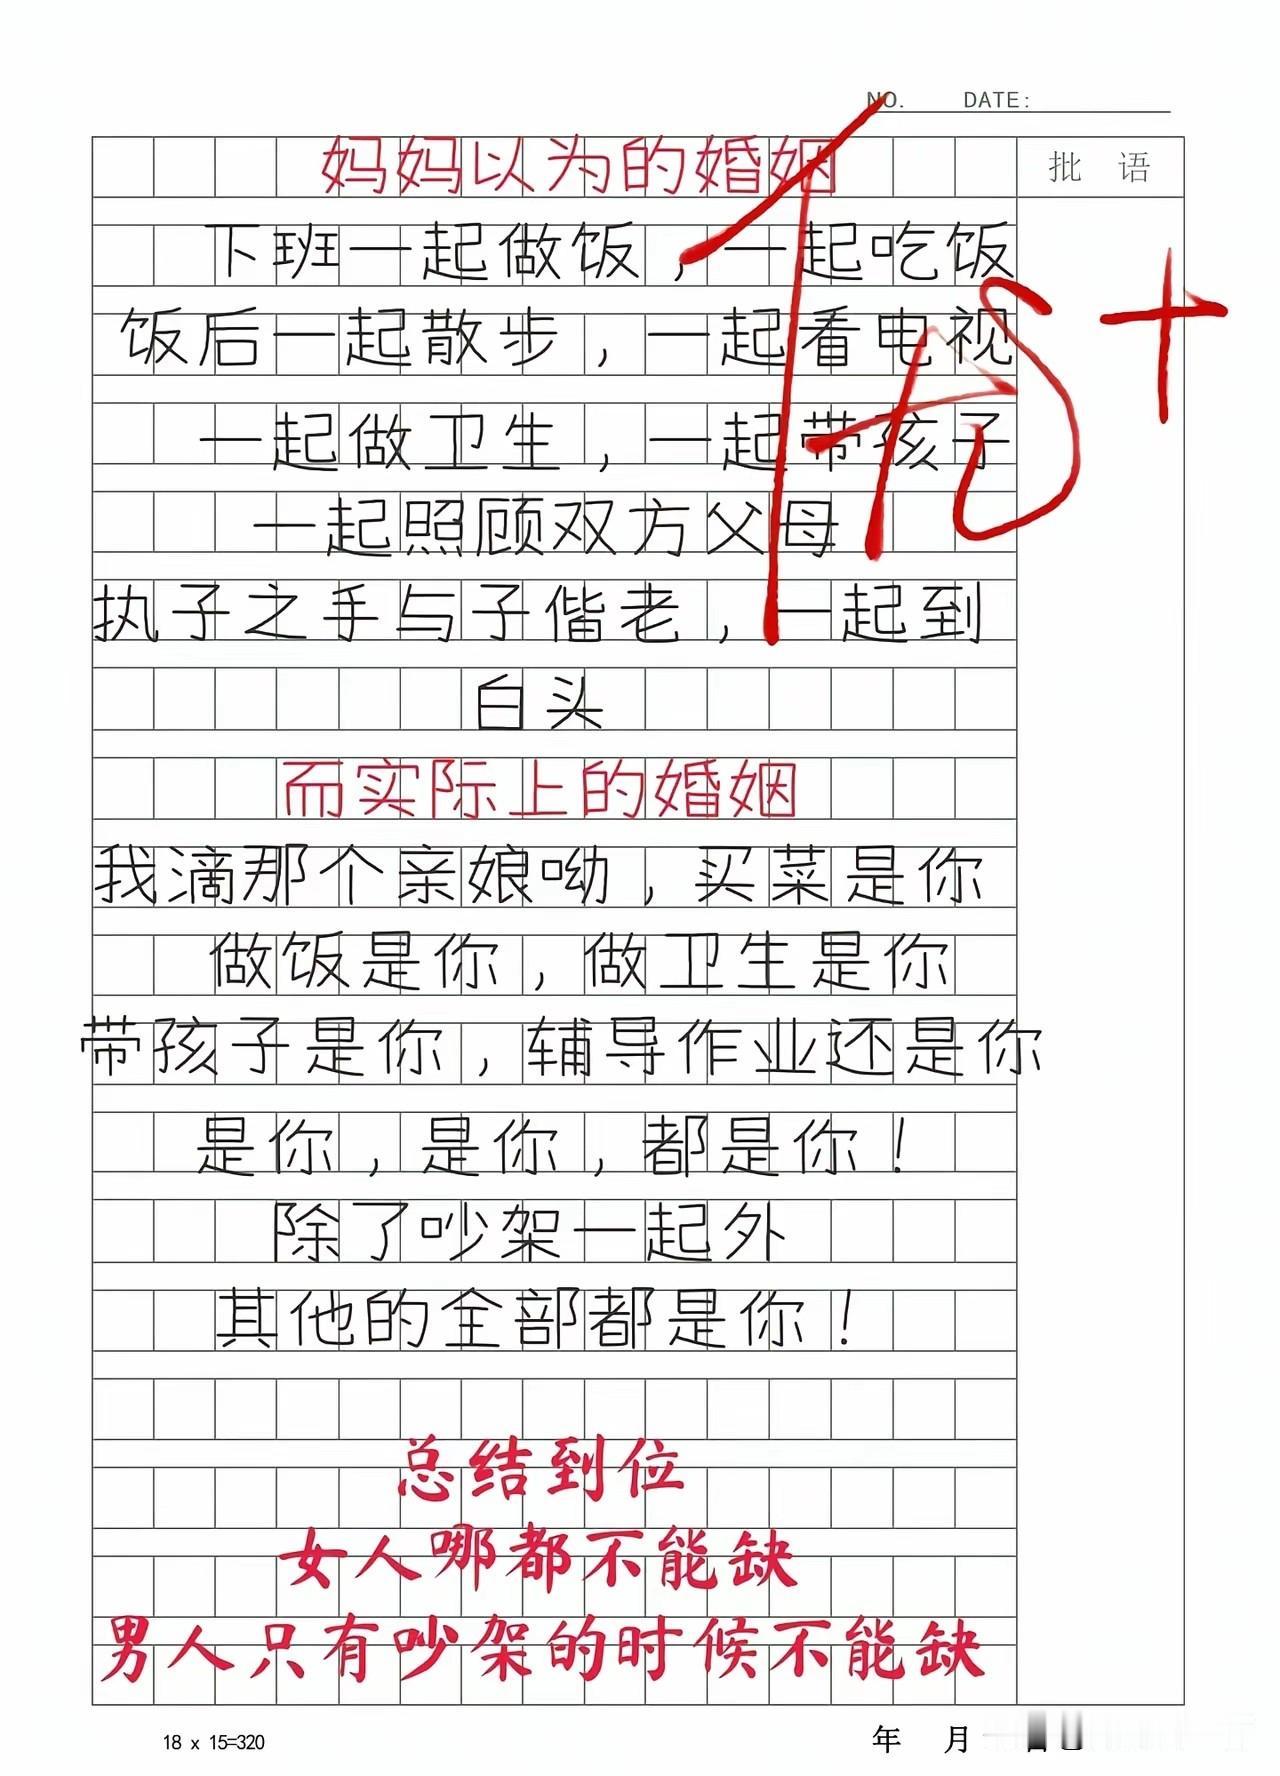 NO. DATE:
批 语
妈妈以为的婚姻
下班一起做饭，一起吃饭
饭后一起散步，一起看电视
一起做卫生，一起带孩子
一起照顾双方父母
执子之手与子偕老，一起到
白头
而实际上的婚姻
我滴那个亲娘呦，买菜是你
做饭是你，做卫生是你
带孩子是你，辅导作业还是你
是你，是你，都是你！
除了吵架一起外
其他的全部都是你！
总结到位
女人哪都不能缺
男人只有吵架的时候不能缺
18 x 15=320
年 月